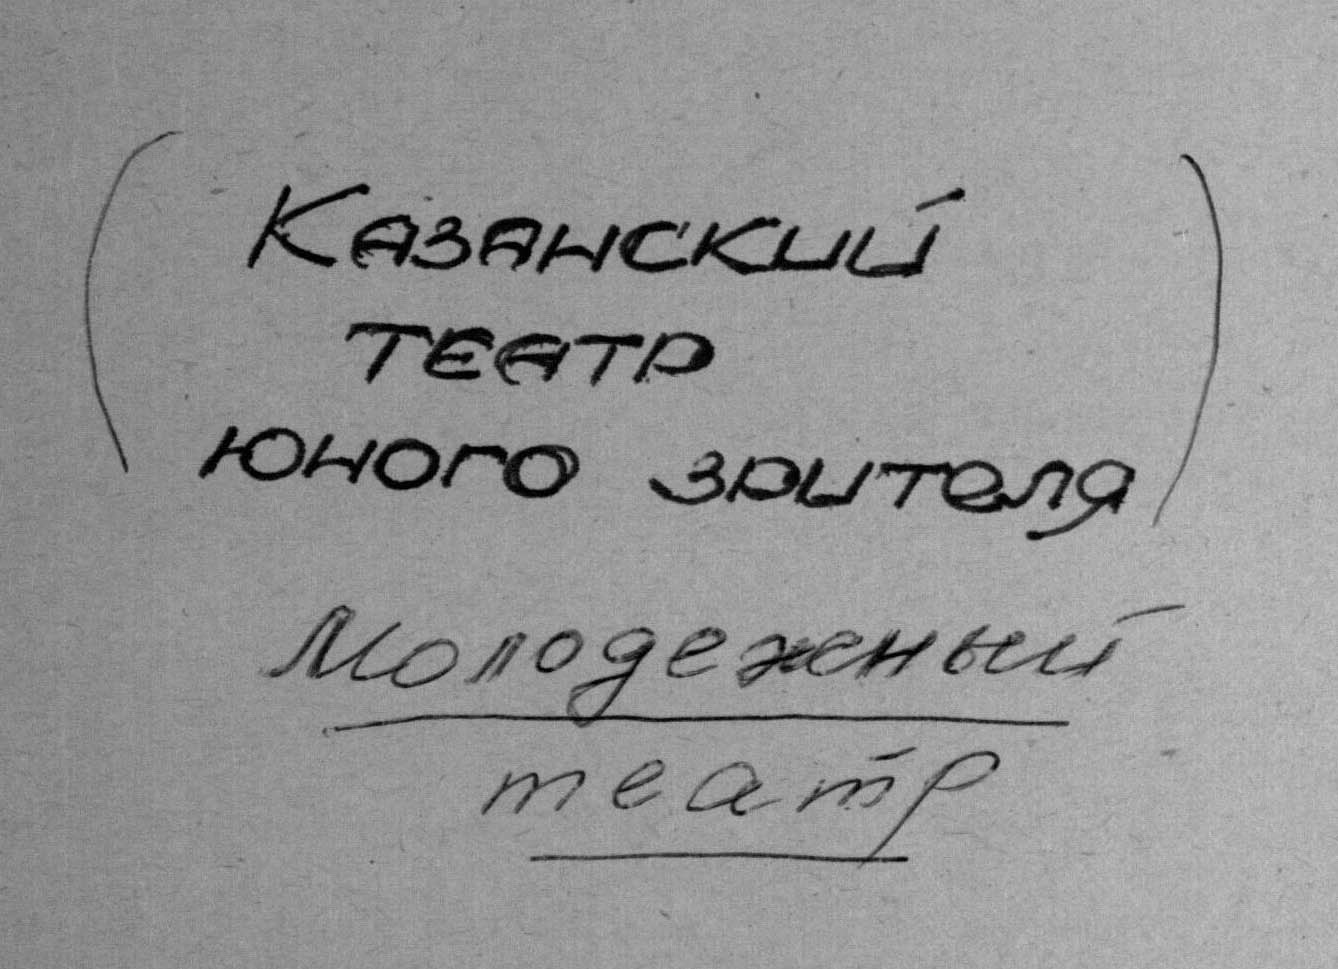 (Казанский
театр
юного зрителя)
Молодежный
театр